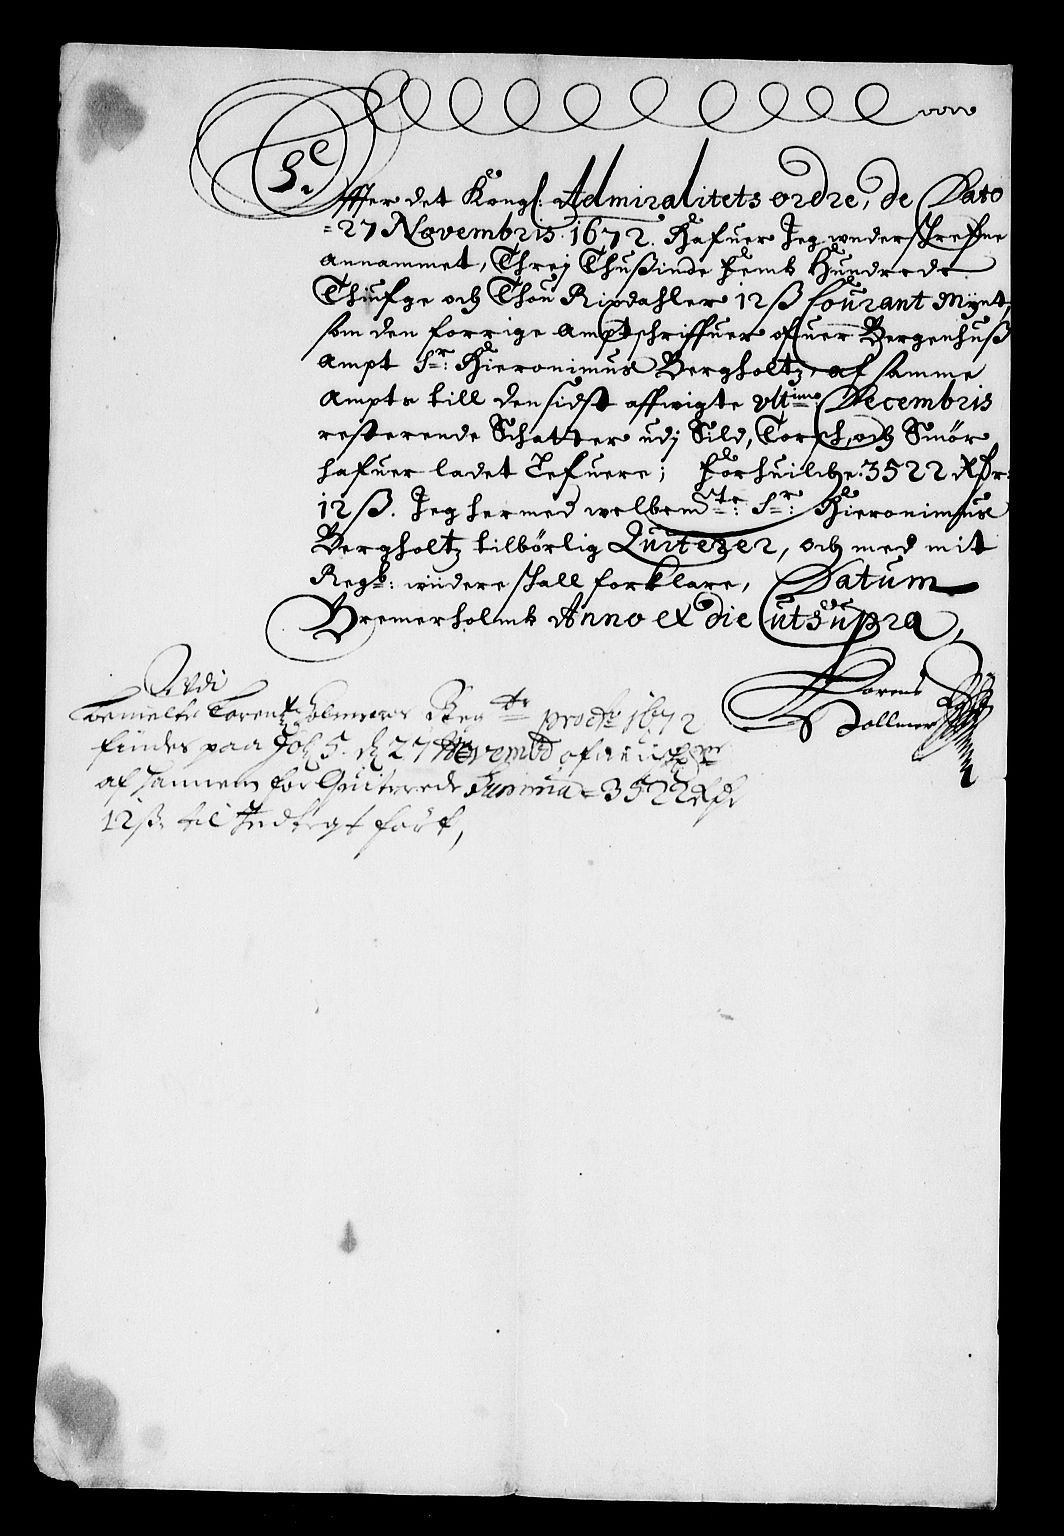 Effter det Kongl: Admiralitets ordre, de Dato
=27 Novembris. 1672. Hafuer Jeg underschrefne
annammet, Threj Thußinde Femb Hundrede
Thiufge och Thou Rixdahler 12 ß Courant Mÿnt,
som den forrige Amptschriffuer ofuer Bergenhuß
Ampt Sr: Hieronimus Bergholtz, af samme
Ampts till den sidst affvigte Ultimo Decembris
resterende Schatter udj Sild, Torsch, och Smör
hafuer ladet Lefuere; Forhuilche. 3522 Rdr:
12 ß. Jeg hermed welbemte: Sr: Hieronimus
Bergholtz tilbörlig Quiterer, och med mit
Regsk: widere schall forklare, Datum
Bremerholmb Anno et die ut supra,
Lorens
Hollmer
Udi
bemelte Lorentz Holmers Reg pro Ao 1672
findes paa fol: 5. d. 27 Novembr
af hannem for Quiterede Summa = 3522 Rdr
12 ß til Indtegt fört,